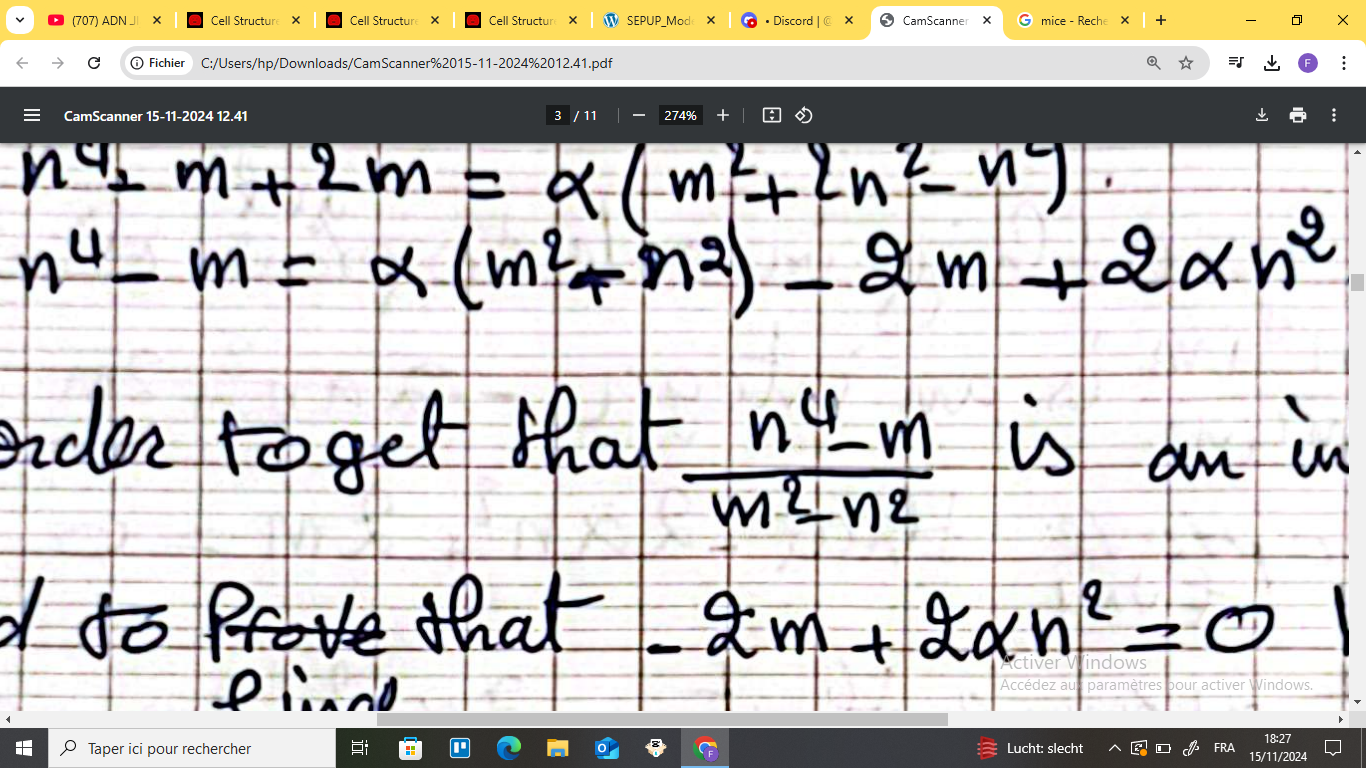 (707) ADN
Cell Structure
Cell Structure
Cell Structure
SEPUP_Mode
• Discord | @
CamScanner
mice - Reche
Fichier
C:/Users/hp/Downloads/CamScanner%2015-11-2024%2012.41.pdf
F
CamScanner 15-11-2024 12.41
3 / 11
274%
n⁴- m + 2m = α ( m² + 2n² - n²) .
n⁴ - m = α (m² - n²) - 2m + 2αn²
order to get that n⁴-m / m²-n² is an in
d to Prove that - 2m + 2αn² = 0
find
Activer Windows
Accédez aux paramètres pour activer Windows.
Taper ici pour rechercher
Lucht: slecht
FRA
18:27
15/11/2024